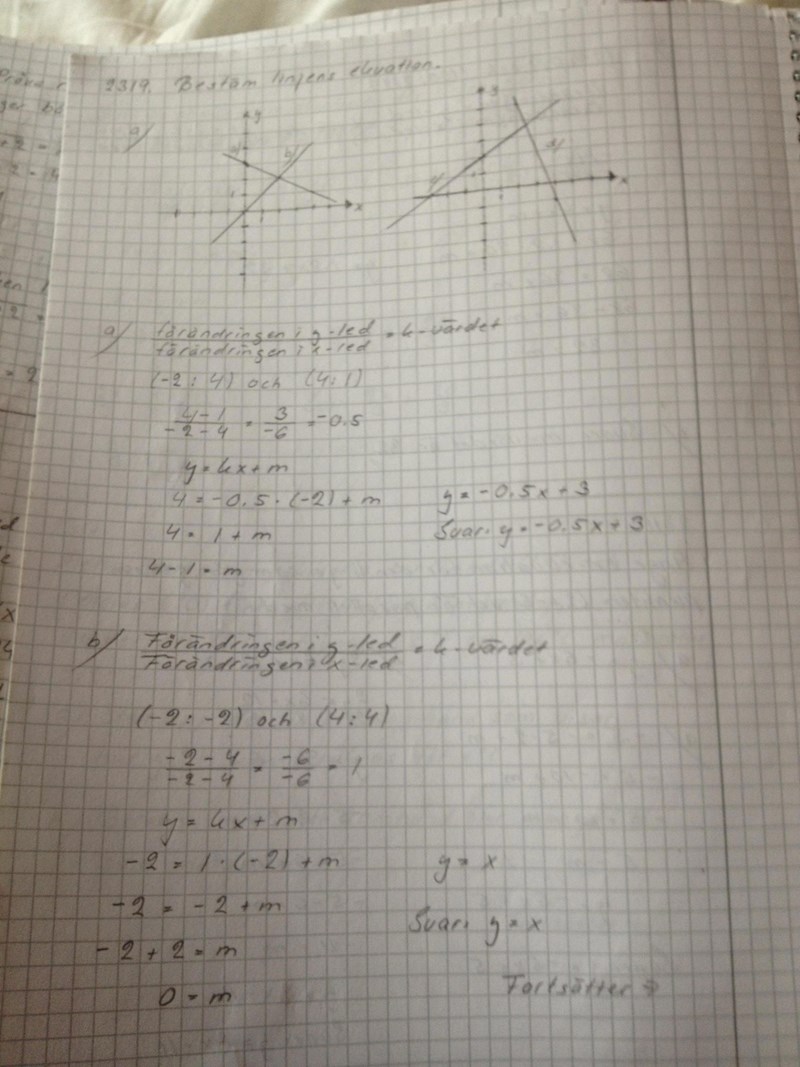 2319. Bestäm linjens ekvation.
a)
y
a)
b)
x
y
c)
d)
x
a) förändringen i y-led / förändringen i x-led = k-värdet
(-2 : 4) och (4 : 1)
4-1 / -2-4 = 3 / -6 = -0.5
y = kx + m
4 = -0.5 · (-2) + m    y = -0.5x + 3
4 = 1 + m    Svar. y = -0.5x + 3
4 - 1 = m
b) Förändringen i y-led / Förändringen i x-led = k-värdet
(-2 : -2) och (4 : 4)
-2-4 / -2-4 = -6 / -6 = 1
y = kx + m
-2 = 1 · (-2) + m    y = x
-2 = -2 + m    Svar. y = x
-2 + 2 = m
0 = m    Fortsätter →